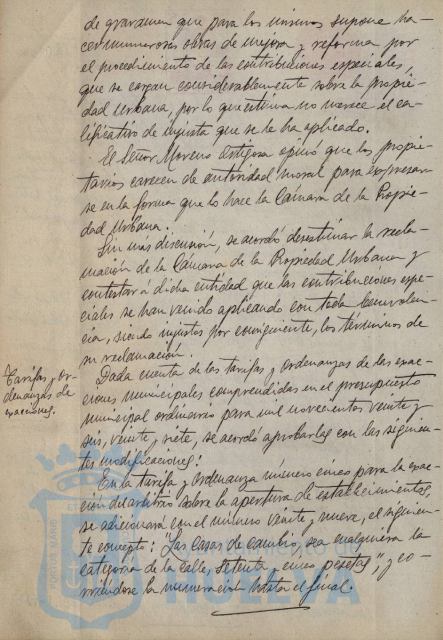 de gravamen que para los mismos supone ha-
cer numerosas obras de mejora y reforma por
el procedimiento de las contribuciones especiales,
que se cargan considerablemente sobre la propie-
dad urbana, por lo que estima no merece el ca-
lificativo de injusta que se le ha aplicado.
El Señor Moreno Ortigosa opinó que los propie-
tarios carecen de autoridad moral para expresar-
se en la forma que lo hace la Cámara de la Propie-
dad Urbana.
Sin mas discusión, se acordó desestimar la recla-
mación de la Cámara de la Propiedad Urbana y
contestar á dicha entidad que las contribuciones espe-
ciales se han venido aplicando con toda benevolen-
cia, siendo injustos por consiguiente, los términos de
su reclamación.
Tarifas y Or-
denanzas de
exacciones.
Dada cuenta de las tarifas y Ordenanzas de las exac-
ciones municipales comprendidas en el presupuesto
municipal ordinario para mil novecientos veinte y
seis, veinte y siete, se acordó aprobarlas con las siguien-
tes modificaciones:
En la tarifa y Ordenanza número cinco para la exac-
ción de arbitrio sobre la apertura de establecimientos,
se adicionará con el número veinte y nueve, el siguien-
te concepto: "Las Casas de cambio, sea cualquiera la
categoría de la calle, setenta y cinco pesetas", y co-
rriéndose la numeración hasta el final.